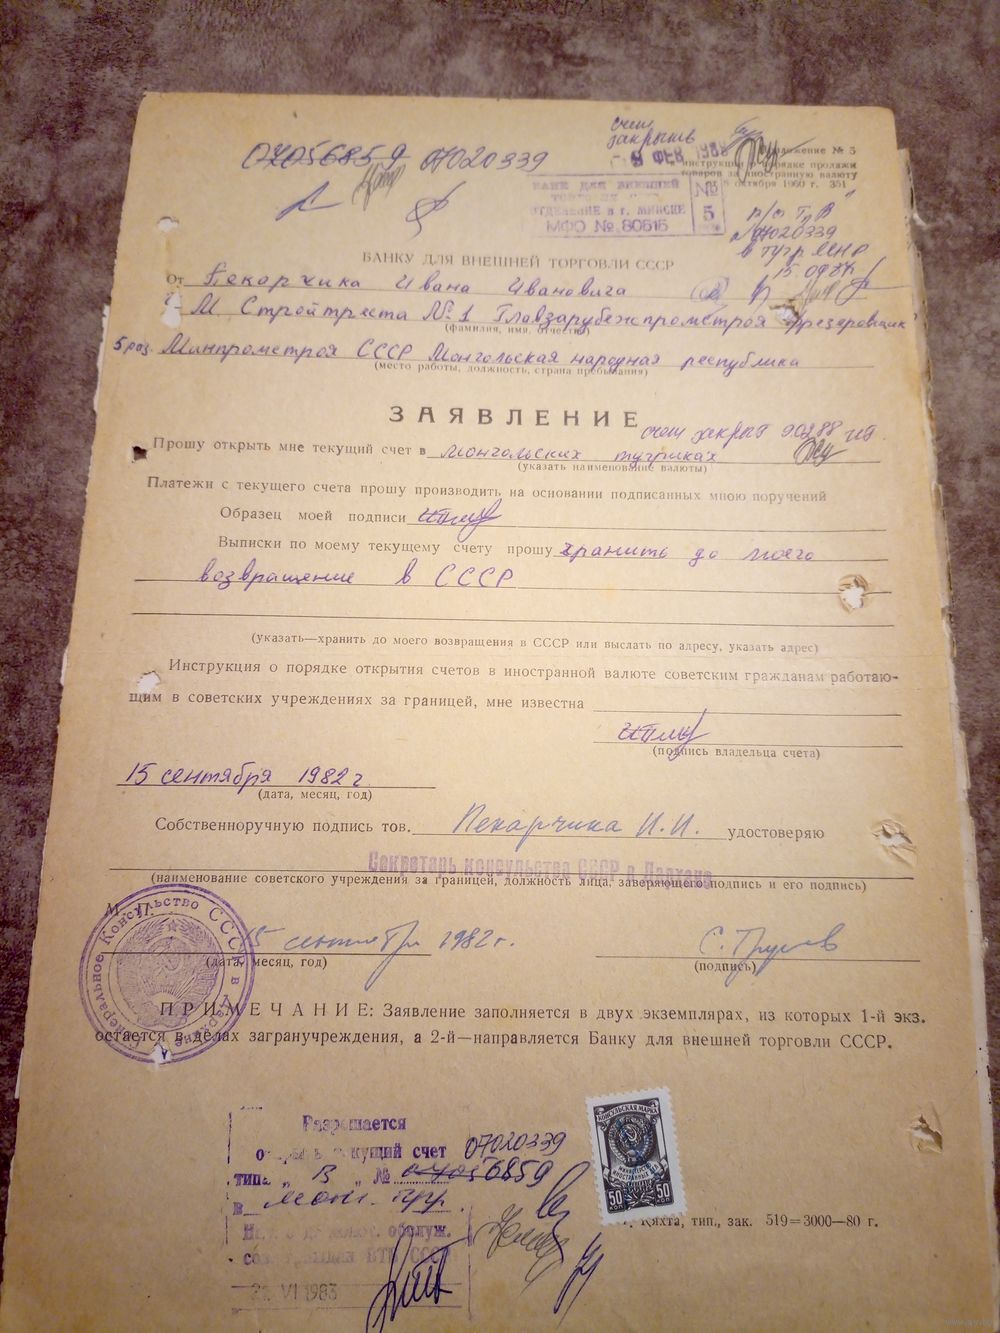 счет
закрыв
07056859 07020339
9 ФЕВ 198
Приложение № 5
к инструкции о порядке продажи
товаров за иностранную валюту
октября 1960 г. 351
БАНК ДЛЯ ВНЕШНЕЙ
ТОРГОВЛИ СССР
ОТДЕЛЕНИЕ в г. МИНСКЕ
МФО № 80515
№ 5
п/сч Т "В"
07020339
в тугр МНР
БАНКУ ДЛЯ ВНЕШНЕЙ ТОРГОВЛИ СССР
От Пекарчика Ивана Ивановича
Стройтреста № 1 Главзарубежпромстроя фрезеровщик
(фамилия, имя, отчество)
5 раз. Минпромстроя СССР Монгольская народная республика
(место работы, должность, страна пребывания)
ЗАЯВЛЕНИЕ
счет закрыт 90288
Прошу открыть мне текущий счет в монгольских тугриках
(указать наименование валюты)
Платежи с текущего счета прошу производить на основании подписанных мною поручений
Образец моей подписи
Выписки по моему текущему счету прошу хранить до моего
возвращение в СССР
(указать—хранить до моего возвращения в СССР или выслать по адресу, указать адрес)
Инструкция о порядке открытия счетов в иностранной валюте советским гражданам работаю-
щим в советских учреждениях за границей, мне известна
(подпись владельца счета)
15 сентября 1982 г
(дата, месяц, год)
Собственноручную подпись тов. Пекарчика И.И. удостоверяю
Секретарь консульства СССР в Дархане
(наименование советского учреждения за границей, должность лица, заверяющего подпись и его подпись)
М. П.
Генеральное Консульство СССР в Дархане
15 сентября 1982 г.
(дата, месяц, год)
(подпись)
ПРИМЕЧАНИЕ: Заявление заполняется в двух экземплярах, из которых 1-й экз.
остается в делах загранучреждения, а 2-й—направляется Банку для внешней торговли СССР.
Разрешается
открыть текущий счет 07020339
типа „ В „ № 07056859
в мон. тугр.
обслуж.
ВТБ СССР
VI 1983
КОНСУЛЬСКАЯ МАРКА
МИНИСТЕРСТВО
ИНОСТРАННЫХ ДЕЛ
СССР
50 КОП 50 КОП
г. Кяхта, тип., зак. 519=3000—80 г.